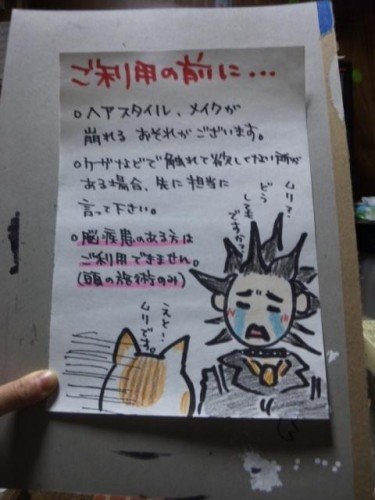 ご利用の前に...
○ヘアスタイル、メイクが
崩れる おそれがございます。
○ケガなどで触れて欲しくない所が
ある場合、先に担当に
言って下さい。
○脳疾患のある方は
ご利用できません。
(頭の施術のみ)
ムリ?
どう
しても
ですか?
えと!
ムリです。